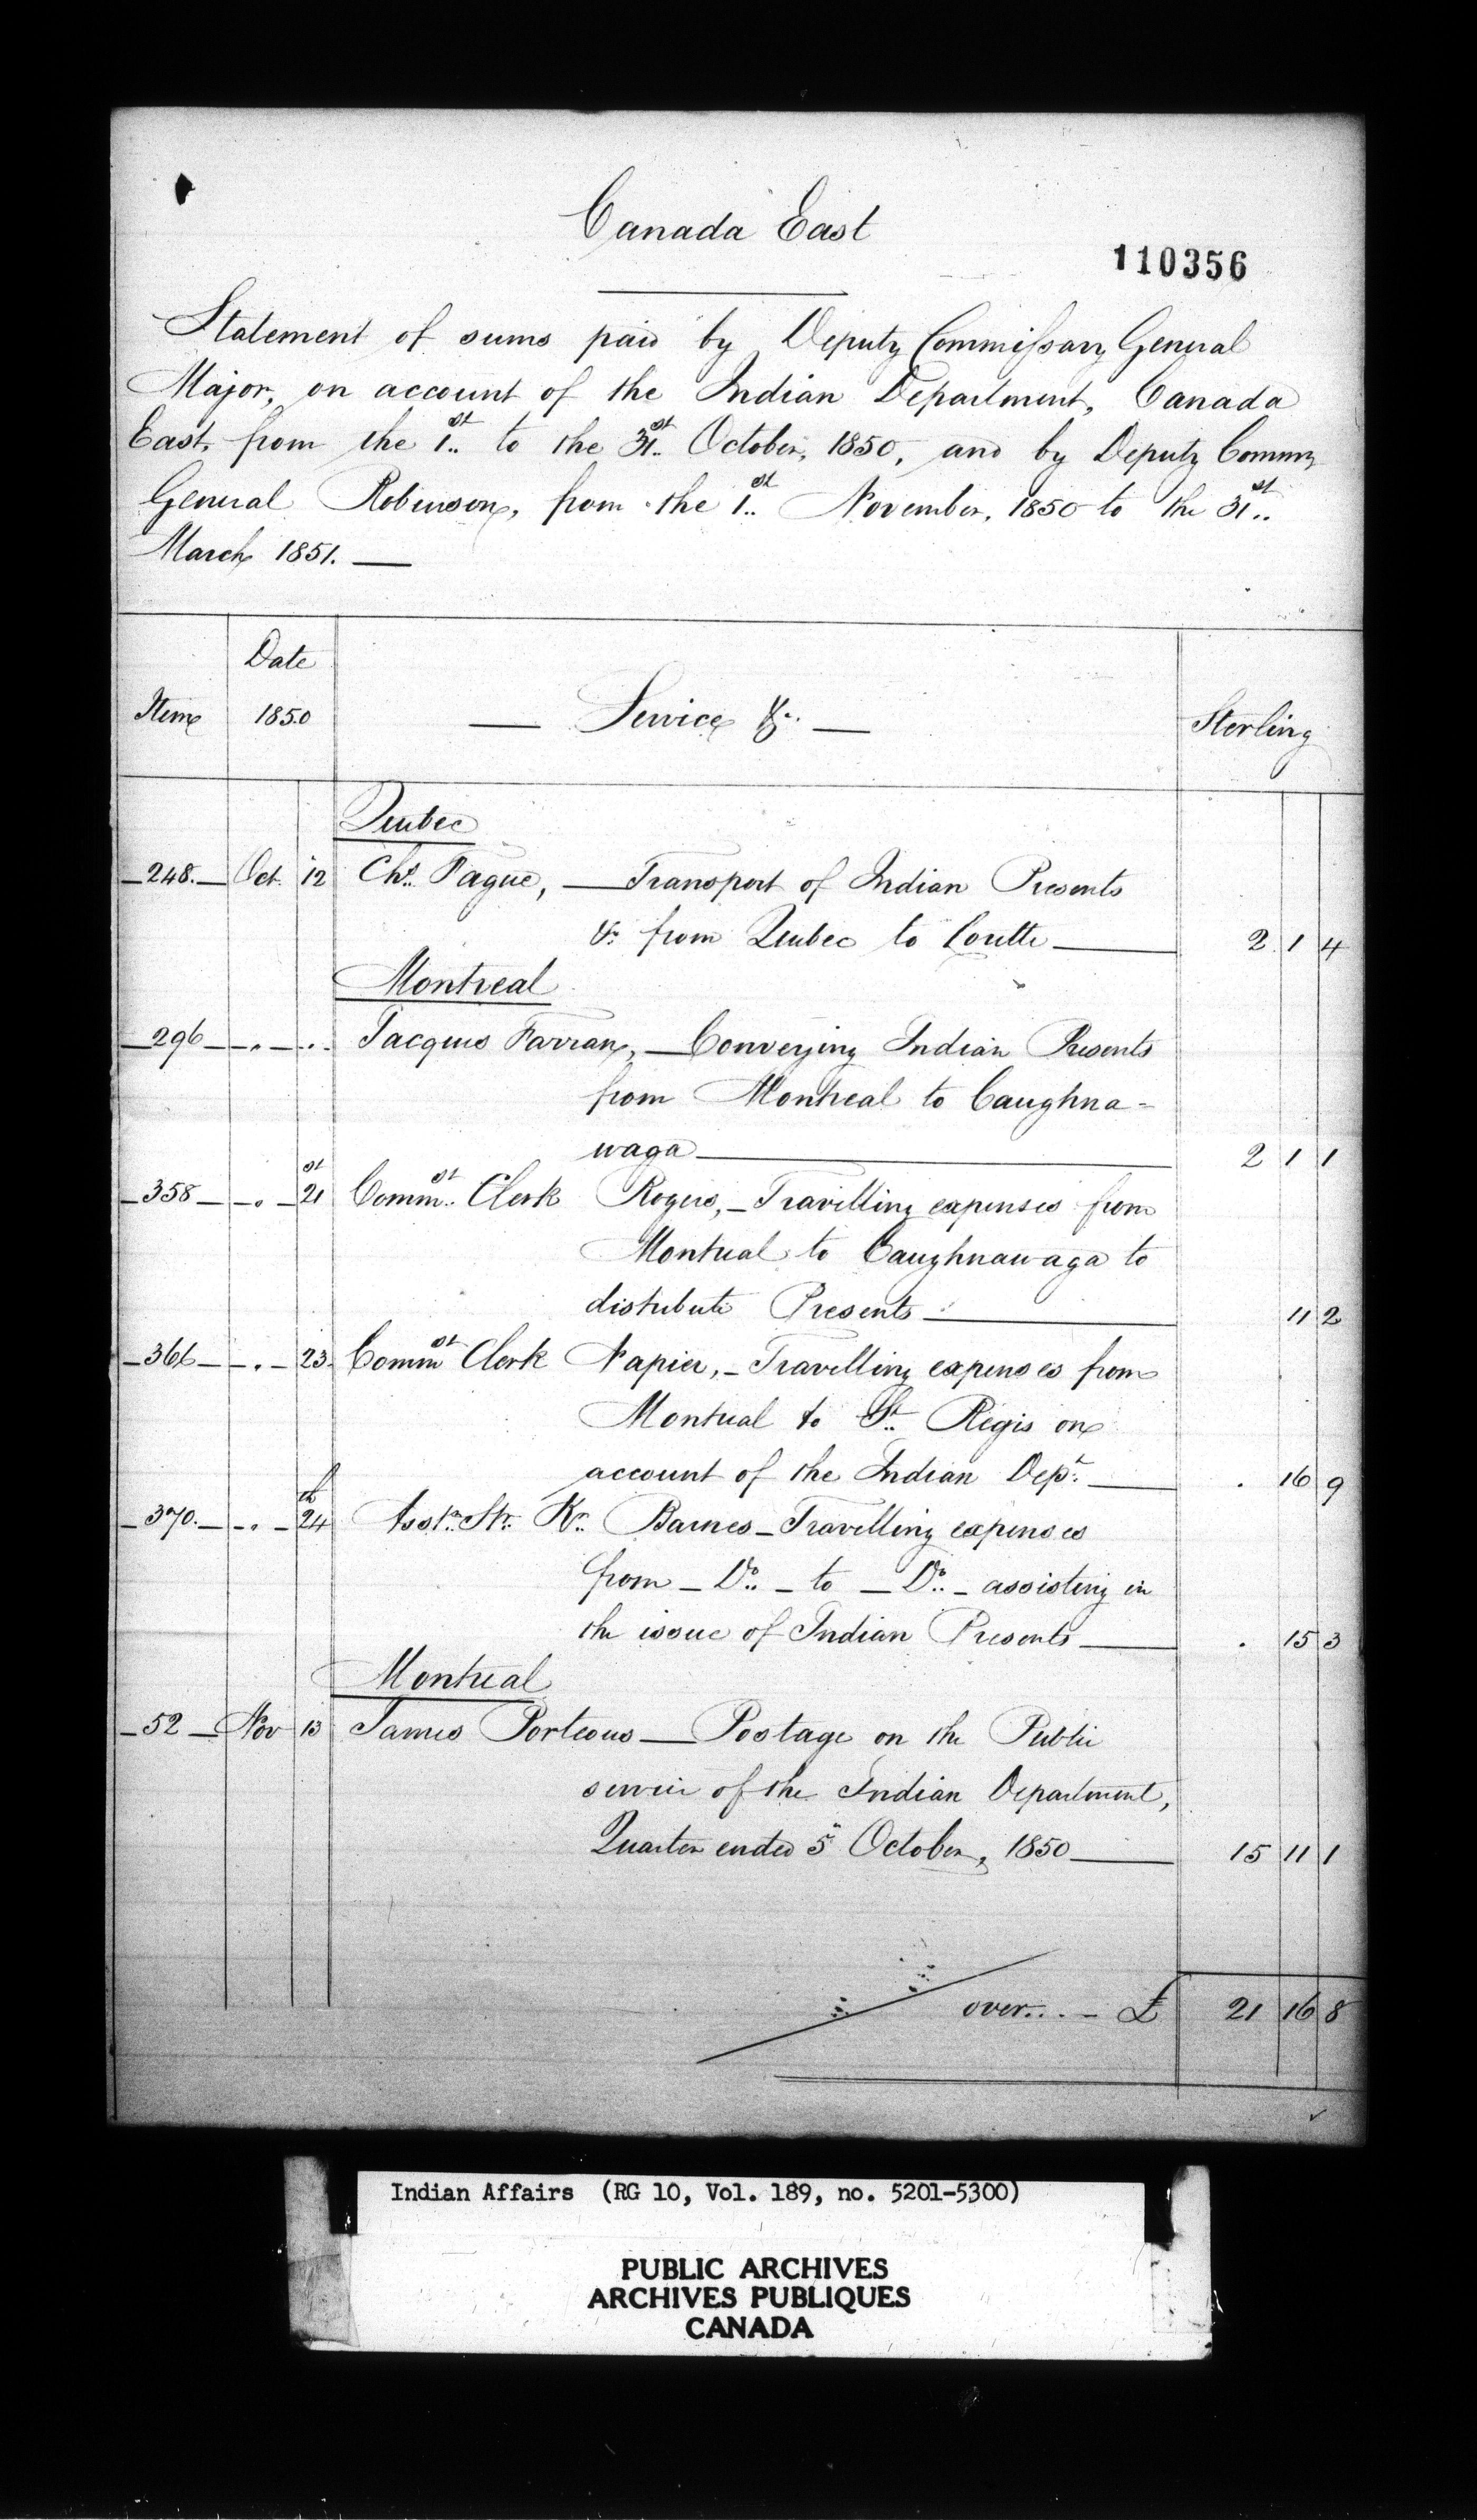 Canada East
110356
Statement of sums paid by Deputy Commissary General
Major, on account of the Indian Department, Canada
East, from the 1st to the 31st October, 1850, and by Deputy Commy
General Robinson, from the 1st November, 1850 to the 31st
March 1851. —
Item Date 1850 — Service &c. — Sterling
Quebec
248. Oct. 12 Chs. Pague, — Transport of Indian Presents
&c from Quebec to Lorette — 2 1 4
Montreal
296 " " Jacques Farran, — Conveying Indian Presents
from Montreal to Caughna=
waga — 2 1 1
358 " 21st Commst. Clerk Rogers, — Travelling expenses from
Montreal to Caughnawaga to
distribute Presents — 11 2
366 " 23 Commst Clerk Napier, — Travelling expenses from
Montreal to St. Regis on
account of the Indian Dept. — . 16 9
370. " 24th Asst. Str. Kr. Barnes — Travelling expenses
from — Do. — to — Do. — assisting in
the issue of Indian Presents — . 15 3
Montreal
52 Nov 13 James Porteous — Postage on the Public
service of the Indian Department,
Quarter ended 5" October, 1850 — 15 11 1
over.... — £ 21 16 8
Indian Affairs (RG 10, Vol. 189, no. 5201-5300)
PUBLIC ARCHIVES
ARCHIVES PUBLIQUES
CANADA